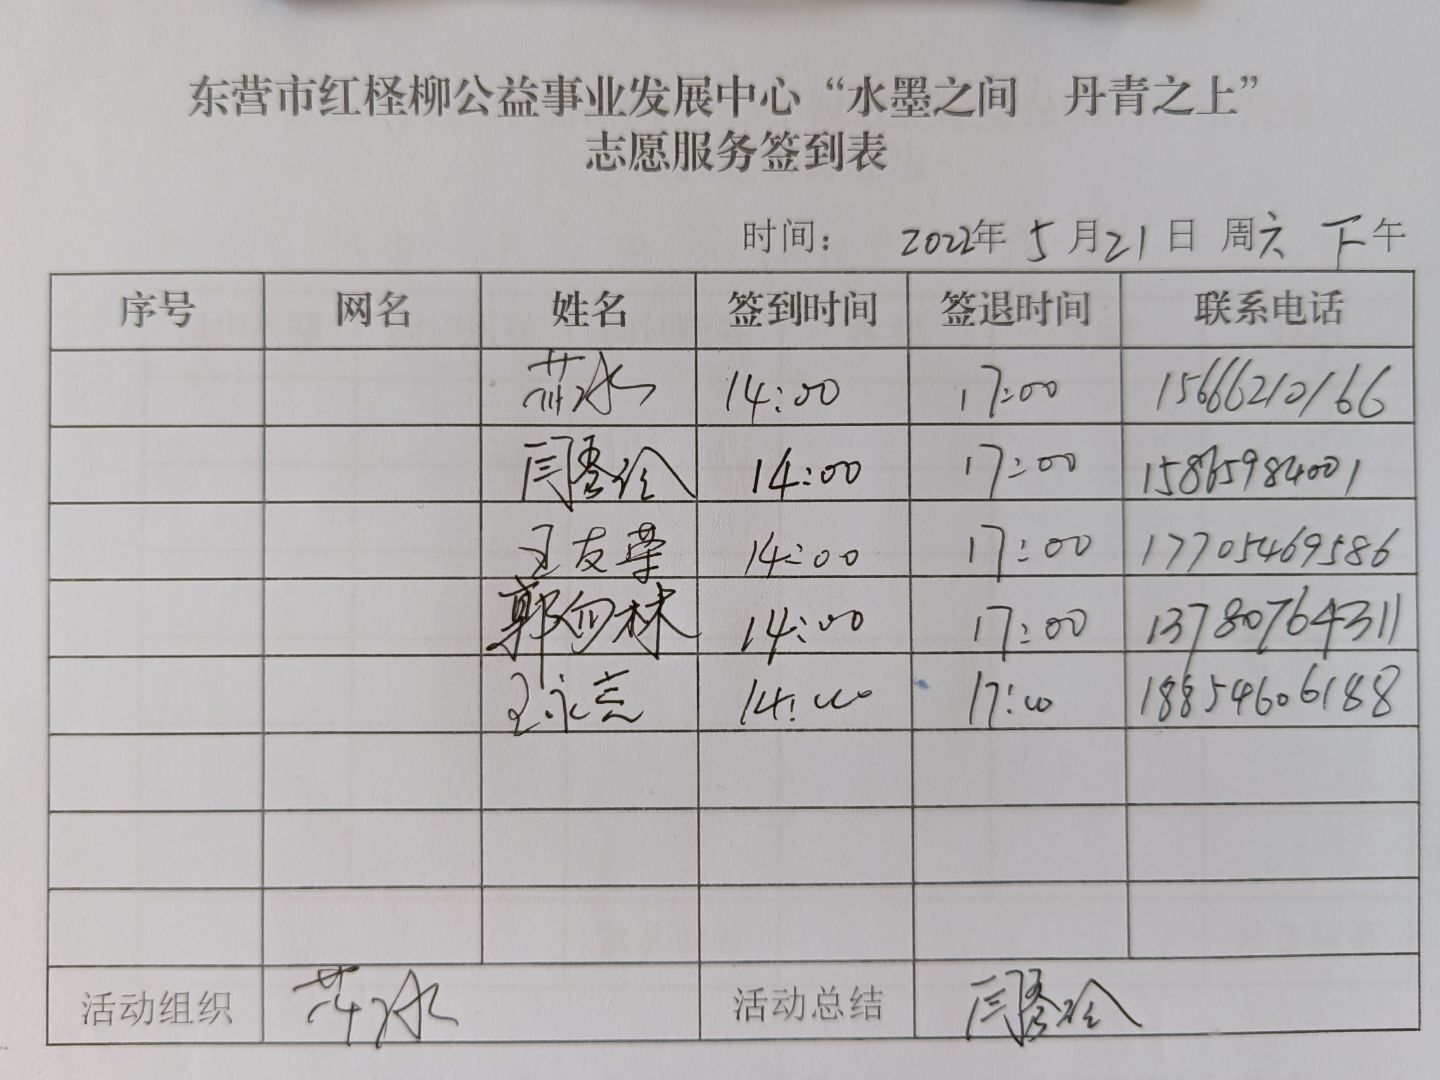 东营市红柽柳公益事业发展中心“水墨之间 丹青之上”
志愿服务签到表
时间： 2022年 5月21日 周六 下午
序号 网名 姓名 签到时间 签退时间 联系电话
14:00 17:00 15666210166
14:00 17:00 15865984001
王友荣 14:00 17:00 17705469586
郭向林 14:00 17:00 13780764311
王永亮 14:00 17:00 18854606188
活动组织 活动总结